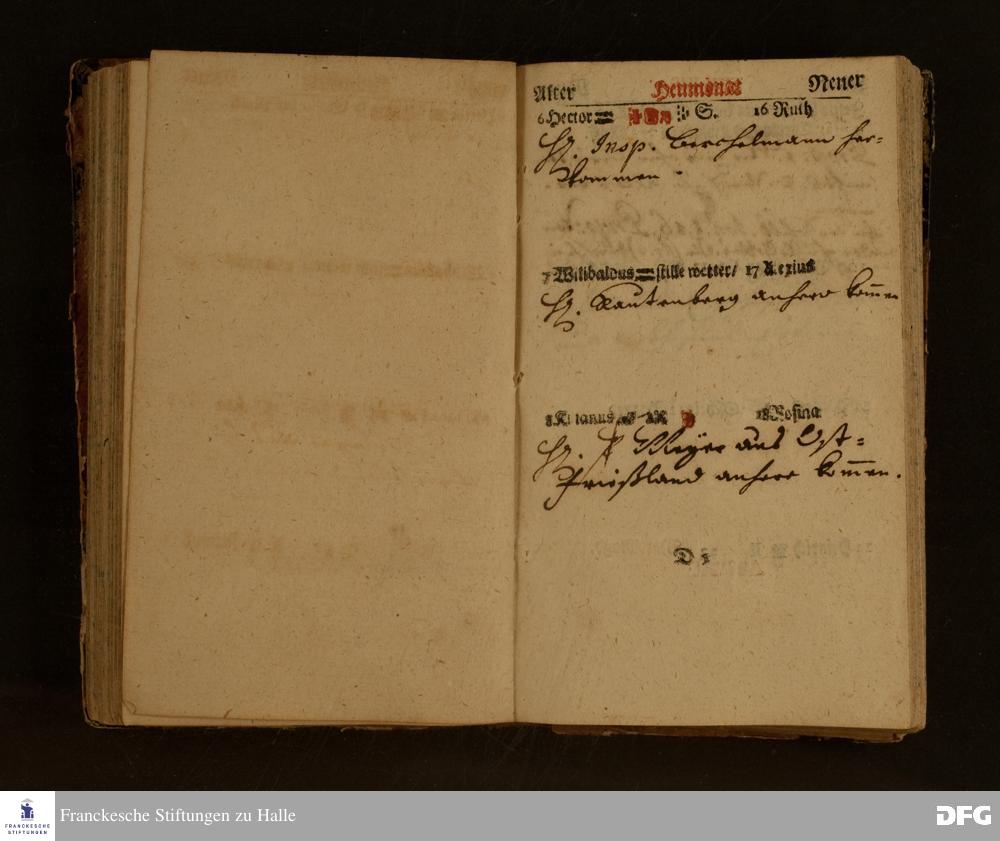 Alter Heumonat Neuer
6 Hector S. 16 Ruth
H. Insp. Berchelmann her-
kommen.
7 Wilibaldus stille wetter/ 17 Alexius
H. Rautenberg anhero kom̅en
8 Kilianus 18 Rosina
H. P Meyer aus Ost-
Frießland anhero kom̅en.
D
Franckesche Stiftungen zu Halle
FRANCKESCHE
STIFTUNGEN
DFG